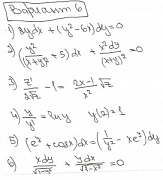 Вариант 6
1) xydx + (y²-6x)dy=0
2) (y²/(x+y)² + 5) dx + x²dy/(x+y)² = 0
4) y/y' = ln y    y(2) = 1
5) (eʸ + cosx)dx = (1/y² - xeʸ)dy
6) xdy/√(1-y²) + ydx/√(1-x²) = 0